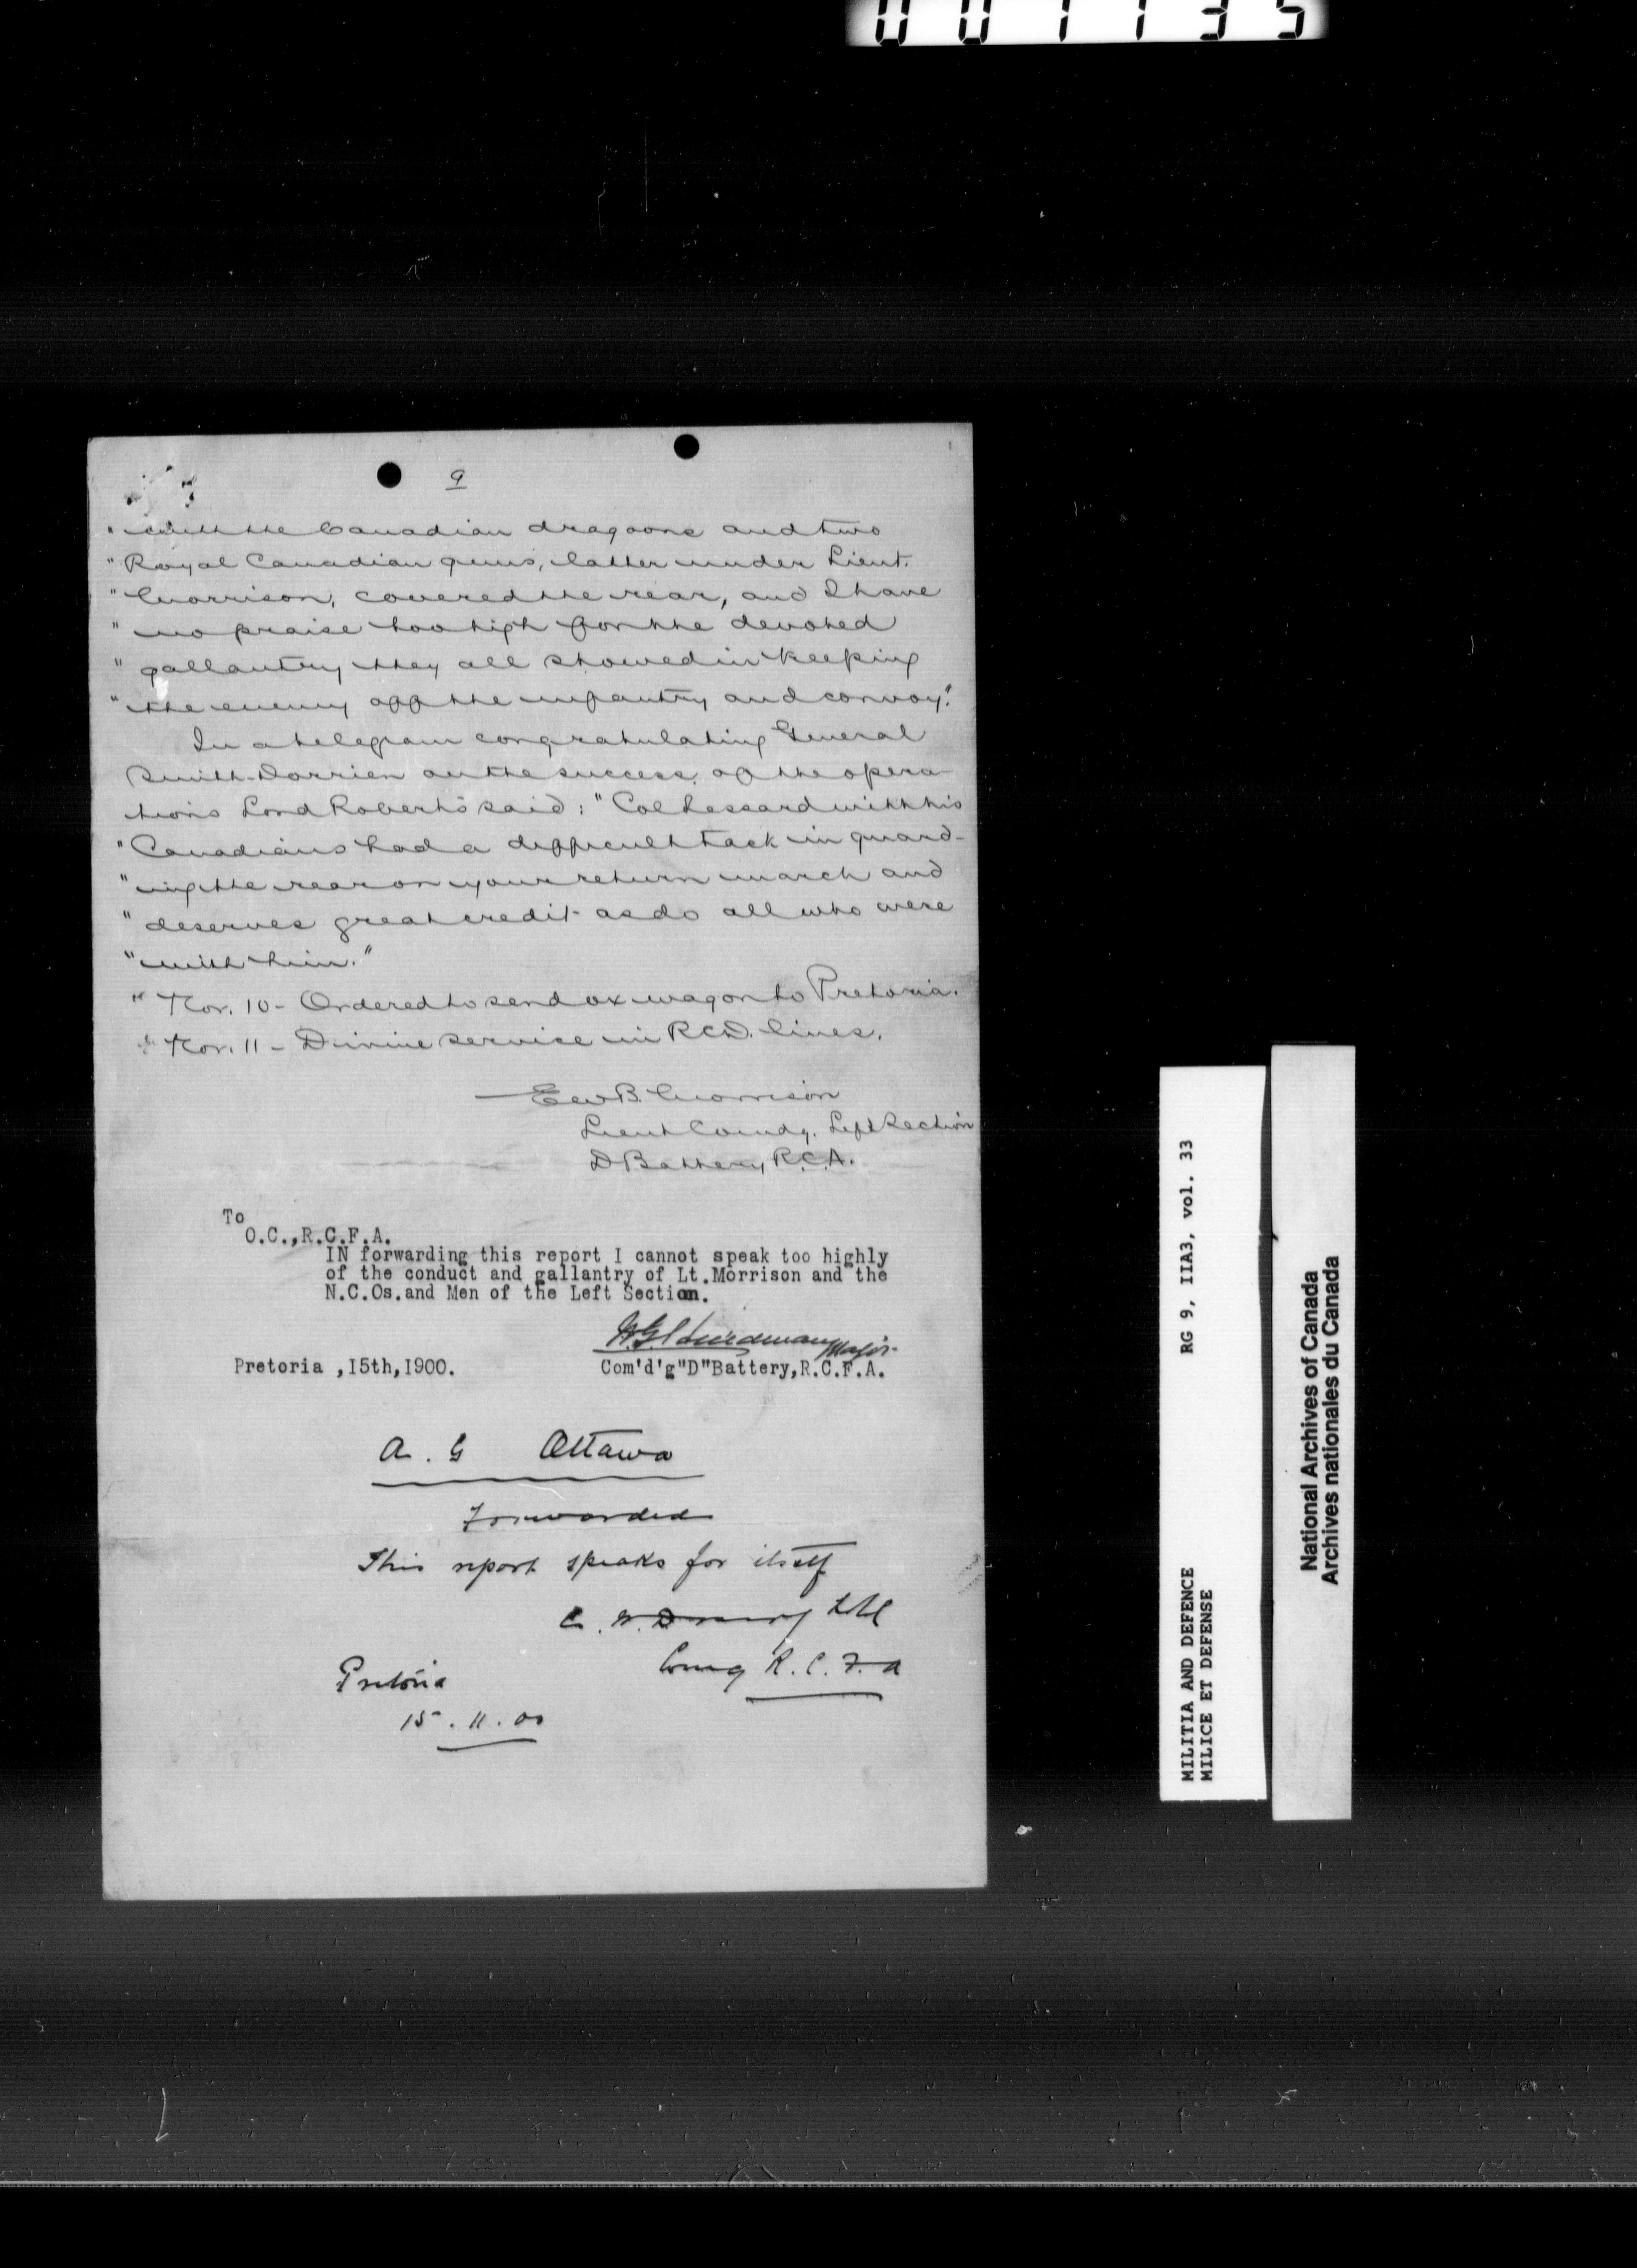 001135
9
" with the Canadian dragoons and two
" Royal Canadian guns, latter under Lieut.
" Morrison, covered the rear, and I have
" no praise too high for the devoted
" gallantry they all showed in keeping
" the enemy off the infantry and convoy."
In a telegram congratulating General
Smith-Dorrien on the success of the opera-
tions Lord Roberts said: "Col Lessard with his
" Canadians had a difficult task in guard-
" ing the rear on your return march and
" deserves great credit as do all who were
" with him."
" Nov. 10 - Ordered to send ox wagon to Pretoria.
" Nov. 11 - Divine service in RCD. lines.
Ed W B. Morrison
Lieut Comdg. Left Section
D Battery R.C.A.
To
O.C.,R.C.F.A.
IN forwarding this report I cannot speak too highly
of the conduct and gallantry of Lt.Morrison and the
N.C.Os.and Men of the Left Section.
W.G. Hurdman Major.
Pretoria ,I5th,I900.
Com'd'g"D"Battery,R.C.F.A.
A. G Ottawa
Forwarded
This report speaks for itself
C. W. Drury Lt Col
Comg R. C. F. A
Pretoria
15. 11. 00
RG 9, IIA3, vol. 33
MILITIA AND DEFENCE
MILICE ET DEFENSE
National Archives of Canada
Archives nationales du Canada